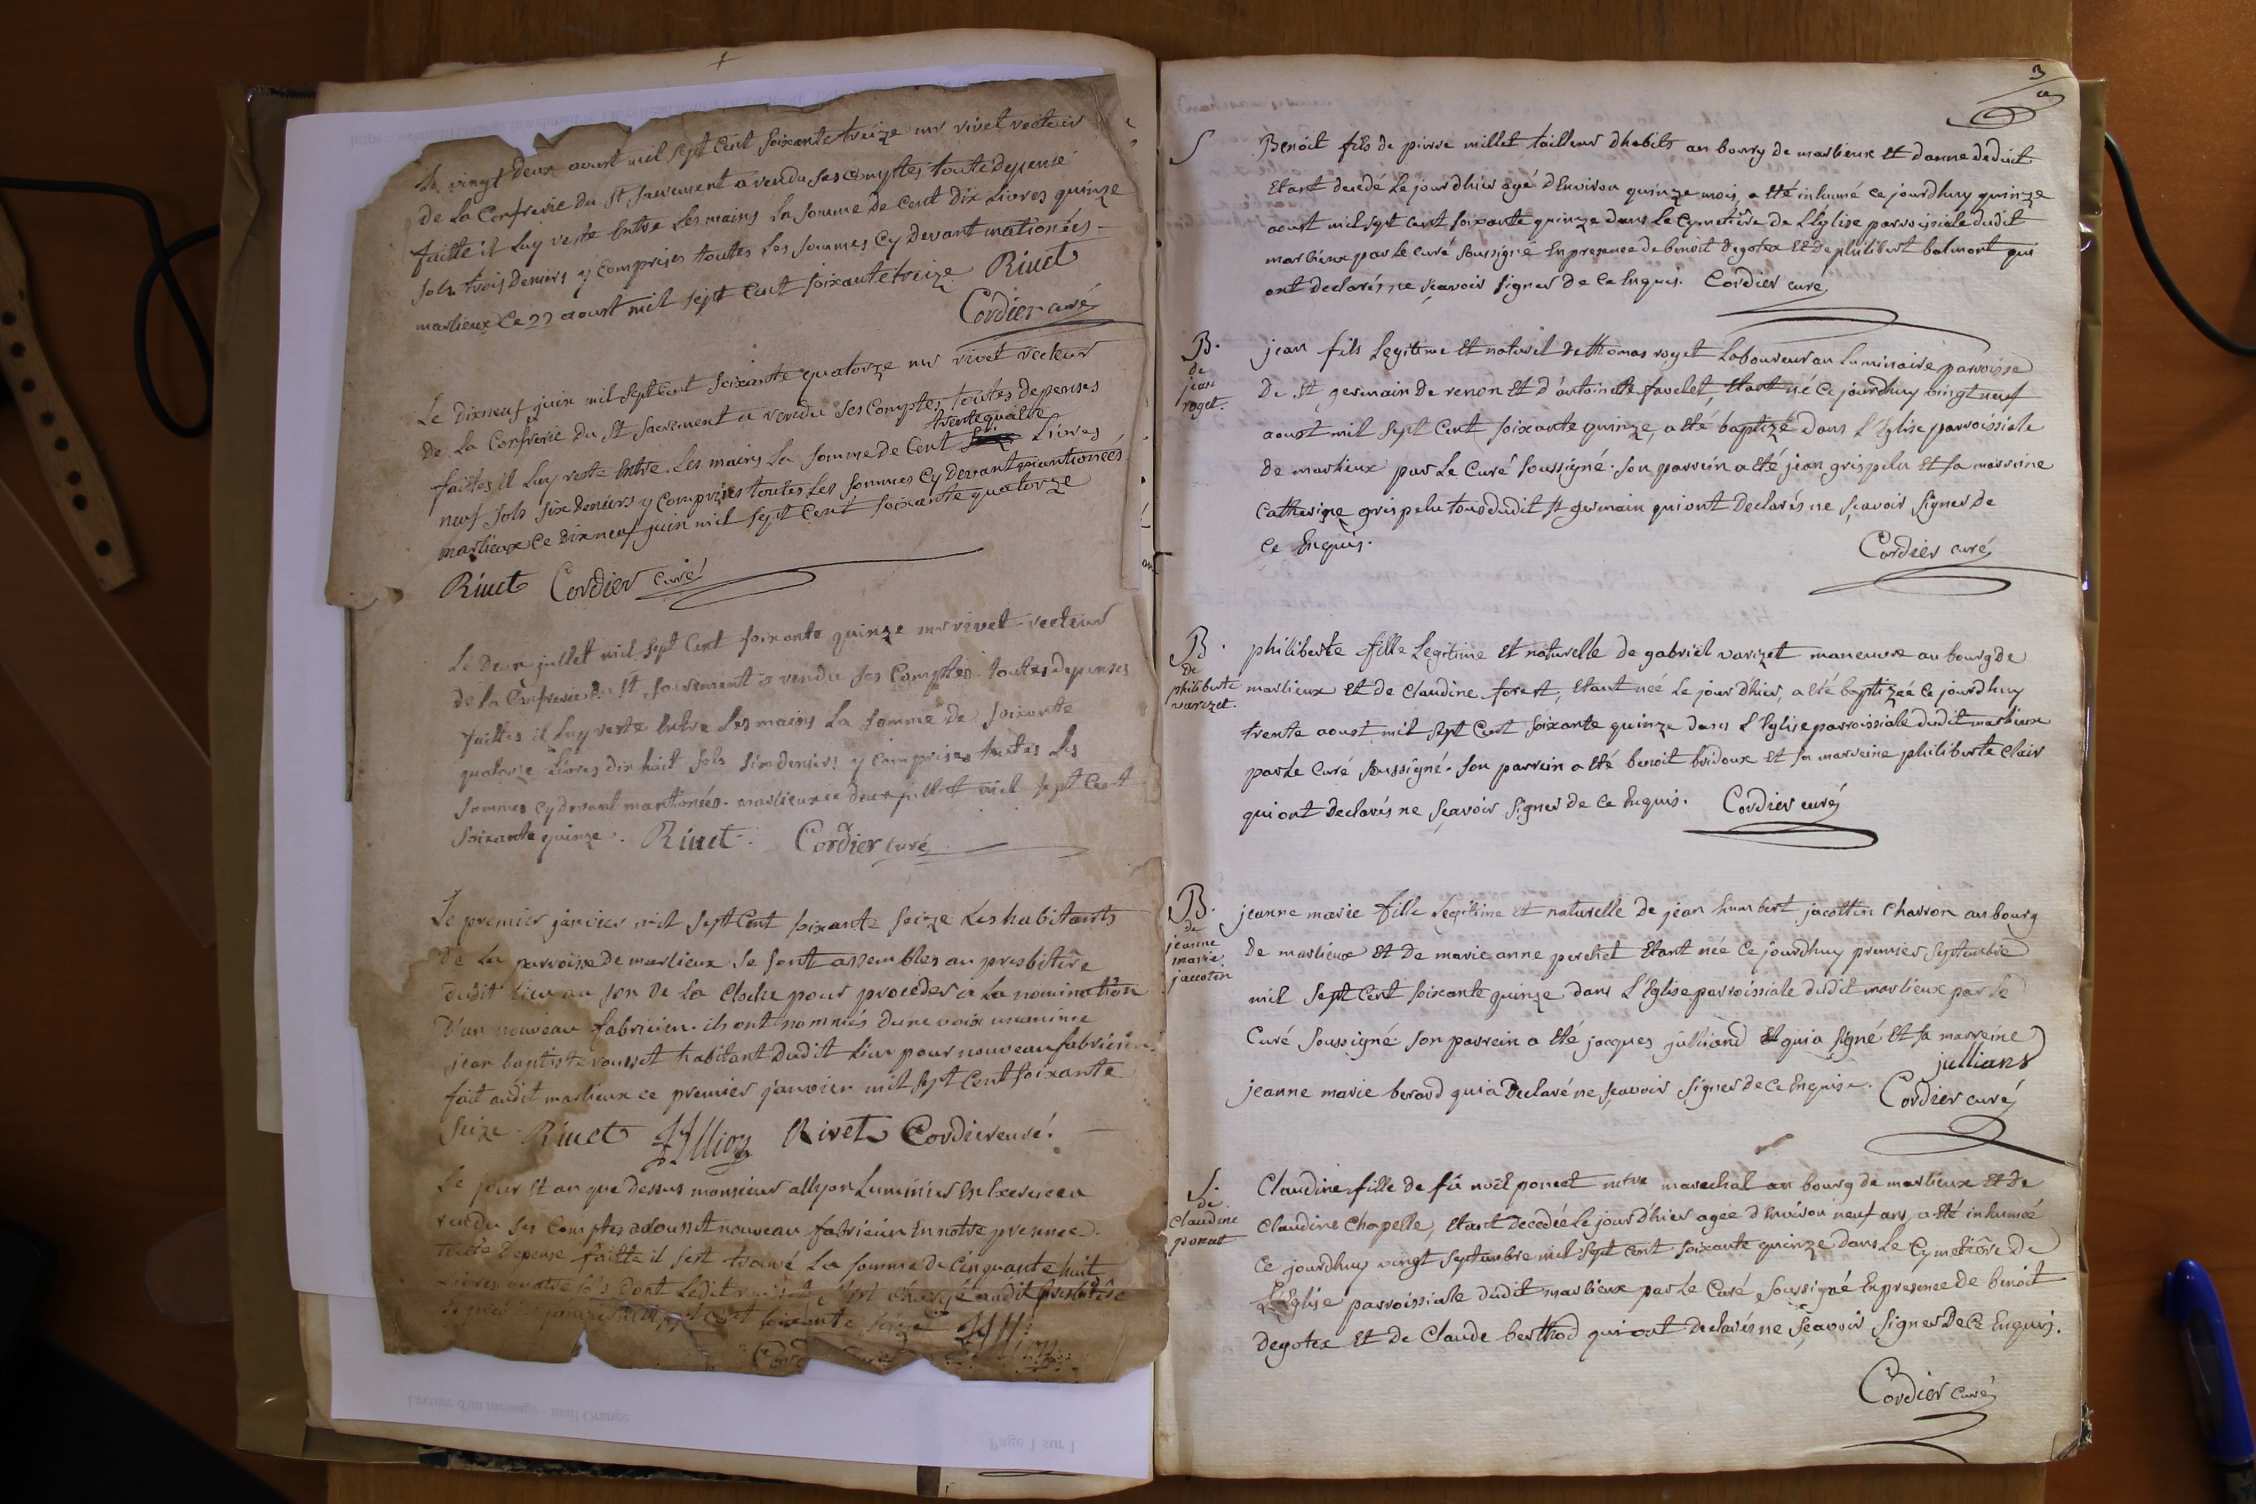 Le vingt deux aoust mil sept Cent soixante treize mr rivet recteur
de La Confrerie du St sacrement a rendu ses comptes toute depense
faitte il Luy reste Entre Les mains La somme de Cent dix Livres quinze
sols trois deniers y comprises toutes Les sommes Cy devant mationées
marlieux Ce 22 aoust mil sept Cent soixante treize Rivet
Cordier curé
Le dixneuf juin mil sept cent soixante quatorze mr rivet recteur
de La Confrerie du St sacrement a rendu ses comptes toutes depenses
trentequatre
faittes il Luy reste Entre Les mains La somme de Cent Livres
neuf sols six deniers y comprises toutes Les sommes Cy devant mantionées
marlieux Ce dix neuf juin mil sept Cent soixante quatorze
Rivet Cordier curé
Le deux juillet mil sept Cent soixante quinze mr rivet recteur
de la Confrerie du St sacrement a rendu ses Comptes toutes depenses
faittes il Luy reste Entre Les mains La somme de soixante
quatorze Livres dix huit sols six deniers y comprises toutes Les
sommes cy devant mantionées. marlieux ce deux juillet mil sept Cent
soixante quinze. Rivet. Cordier curé
Le premier janvier mil sept Cent soixante seize Les habitants
de La parroisse de marlieux se sont assembles au presbitère
dudit lieu au son de La Cloche pour proceder a La nomination
d'un nouveau fabricien. ils ont nommés dune voix unanime
jean baptiste rousset habitant dudit Lieu pour nouveau fabricien.
fait audit marlieux ce premier janvier mil sept Cent soixante
seize. Rivet Rivet Cordier curé.
Le jour et an que dessus monsieur allyon Luminier En Exercice a
rendu ses Comptes a rousset nouveau fabricien En notre presence.
toute depense faitte il sest trouvé La somme de Cinquante huit
Livres quatre sols dont Ledit sest chargé audit presbitère
Cent soixante seize
3
S Benoit fils de pierre millet tailleur dhabits au bourg de marlieux Et danne deduit
Etant decedé Le jour dhier agé dEnviron quinze mois, a Eté inhumé ce jourdhuy quinze
aoust mil sept cent soixante quinze dans Le Cymetière de LEglise parroissiale dudit
marlieux par Le curé soussigné En presence de benoit degotex Et de philibert balmont qui
ont declarés ne sçavoir signer de Ce Enquis. Cordier curé
B. de jean roget.
jean fils Legitime Et naturel de thomas roget Laboureur au Luminaire parroisse
De St germain de renon Et d'antoinette favelet, Etant né Ce jourdhuy vingt neuf
aoust mil sept Cent soixante quinze, a Eté baptizé dans L'Eglise parroissiale
de marlieux par Le Curé soussigné. son parrein a Eté jean grispelu Et sa marreine
Catherine grispelu tous dudit St germain qui ont Declarés ne sçavoir signer de
Ce Enquis.
Cordier curé
B. de philiberte varizet.
philiberte fille Legitime Et naturelle de gabriel varizet maneuvre au bourg de
marlieux Et de Claudine forest, Etant née Le jour dhier, a Eté baptizée Ce jourdhuy
trente aoust mil sept Cent soixante quinze dans L'Eglise parroissiale dudit marlieux
par Le Curé soussigné. son parrein a Eté benoit bridoux Et sa marreine philiberte Clair
qui ont Declarés ne sçavoir signer de Ce Enquis. Cordier curé
B. de jeanne marie jaccotin
jeanne marie fille Legitime Et naturelle de jean humbert jacottin Charron au bourg
de marlieux Et de marie anne perchet Etant née Ce jourdhuy premier septembre
mil sept Cent soixante quinze dans L'Eglise parroissiale dudit marlieux par Le
Curé soussigné son parrein a Eté jacques julliand qui a signé Et sa marreine
julliand
jeanne marie berard qui a Declaré ne sçavoir signer de Ce Enquise. Cordier curé
S. de Claudine poncet
Claudine fille de fû noël poncet mtre marechal au bourg de marlieux Et de
Claudine Chapelle, Etant decedée Le jour dhier agée dEnviron neuf ans, a Eté inhumée
Ce jourdhuy vingt septembre mil sept Cent soixante quinze dans Le Cymetière de
L'Eglise parroissiale dudit marlieux par Le Curé soussigné En presence de benoit
degotex Et de Claude berthod qui ont declarés ne sçavoir signer De Ce Enquis.
Cordier curé
Page 1 sur 1